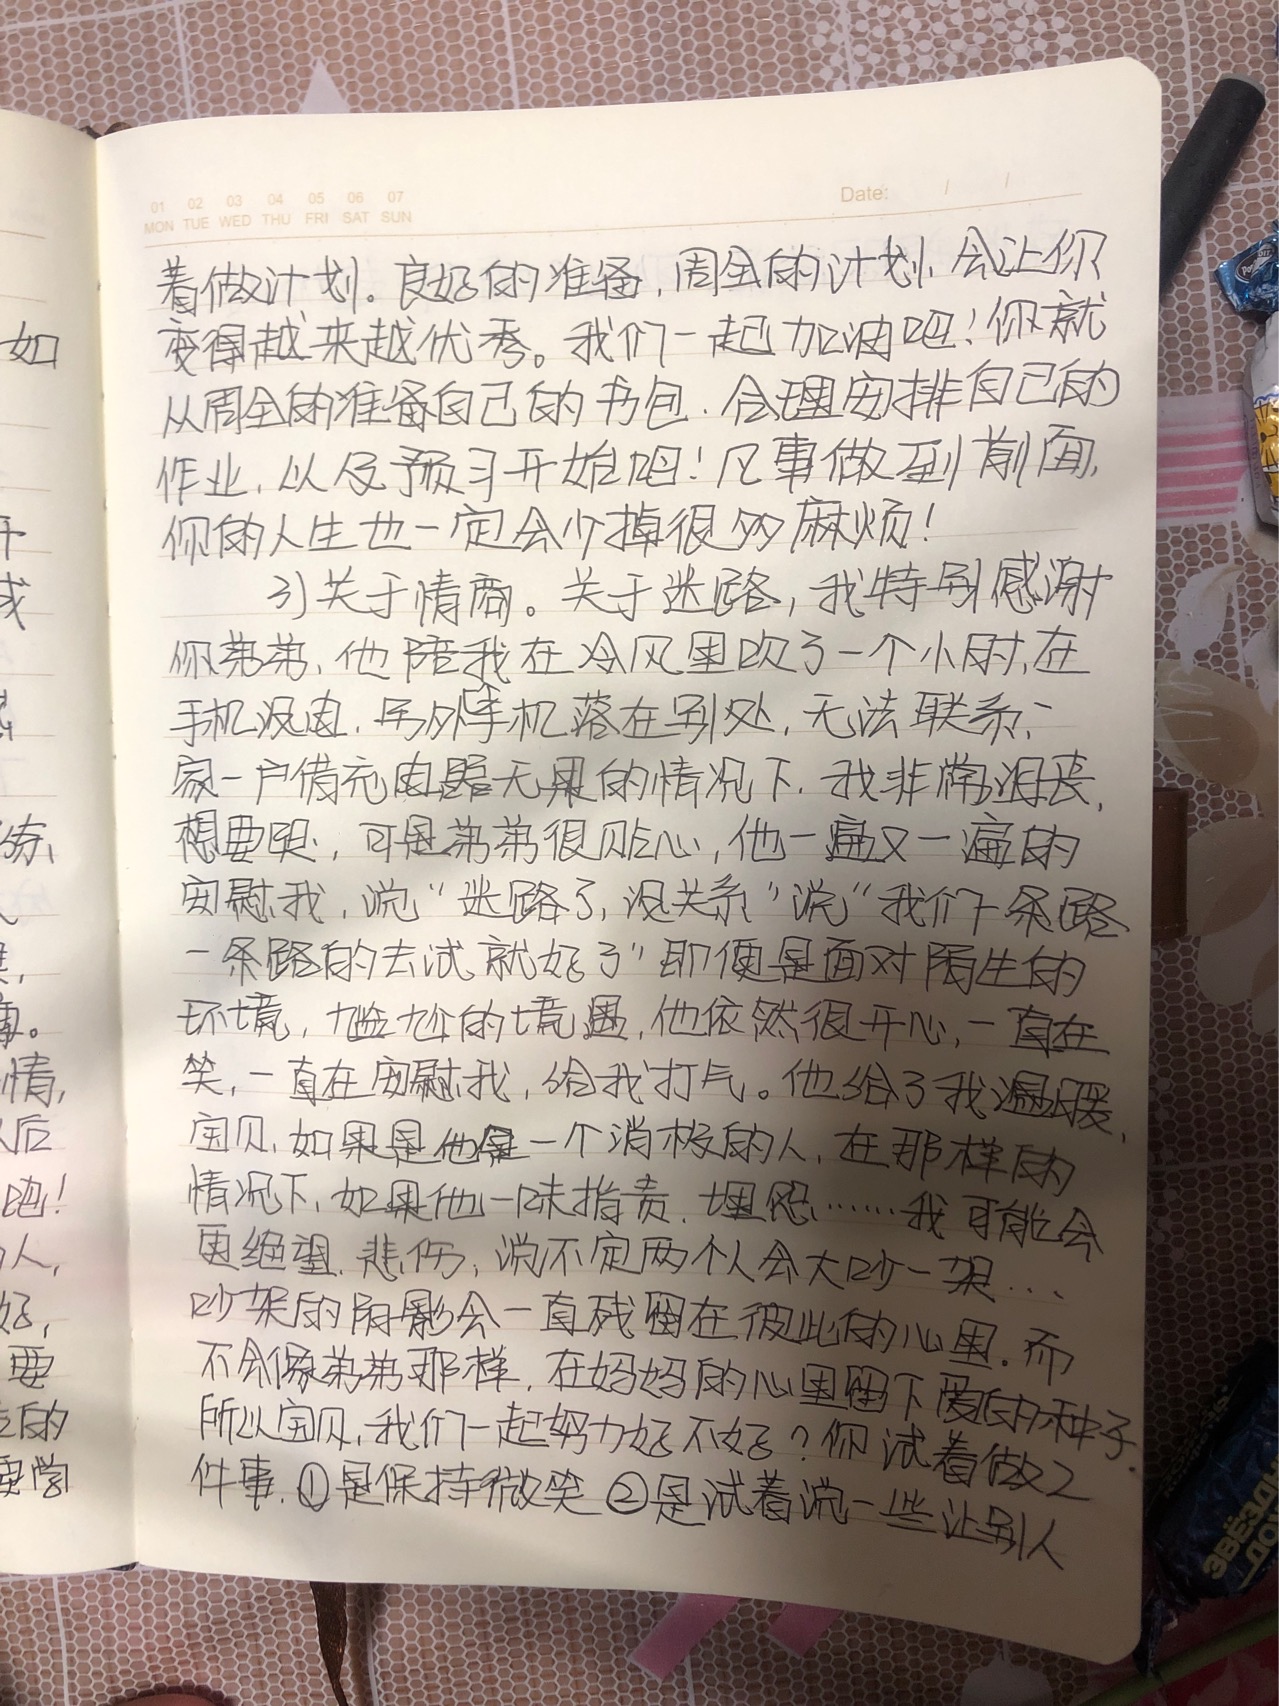 01 02 03 04 05 06 07
MON TUE WED THU FRI SAT SUN
Date: / /
着做计划。良好的准备,周全的计划,会让你
变得越来越优秀。我们一起加油吧!你就
从周全的准备自己的书包,合理安排自己的
作业,以及预习开始吧!凡事做到前面,
你的人生也一定会少掉很多麻烦!
3)关于情商。关于迷路,我特别感谢
你弟弟,他陪我在冷风里吹了一个小时,在
手机没电,另外手机落在别处,无法联系,一
家一户借充电器无果的情况下,我非常沮丧,
想要哭,可是弟弟很贴心,他一遍又一遍的
安慰我,说“迷路了,没关系”说“我们一条路
一条路的去试就好了”即便是面对陌生的
环境,尴尬的境遇,他依然很开心,一直在
笑,一直在安慰我,给我打气。他给了我温暖,
宝贝,如果是他是一个消极的人,在那样的
情况下,如果他一味指责,埋怨……我可能会
更绝望,悲伤,说不定两个人会大吵一架…
吵架的阴影会一直残留在彼此的心里,而
不会像弟弟那样,在妈妈的心里留下爱的种子.
所以宝贝,我们一起努力好不好?你试着做2
件事,①是保持微笑②是试着说一些让别人
如
开
或
情,
以后
吧!
的人,
好,
要
的
要学
ЗВЁЗД